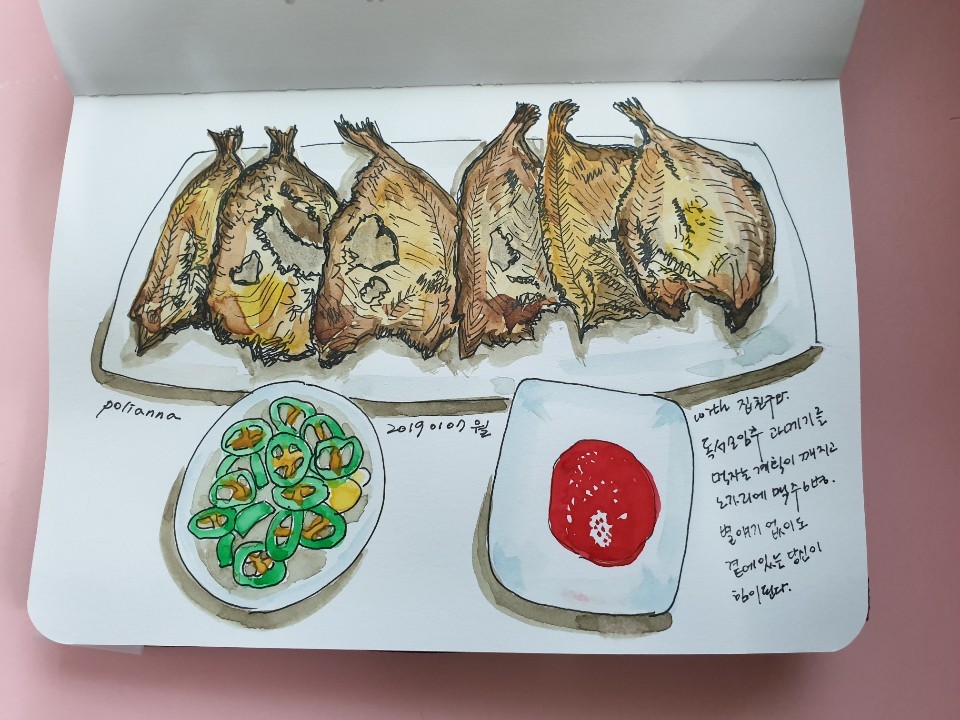 polianna
2019 01 07 월
with 집친구다.
독서모임후 과메기를
먹자는 계획이 깨지고
노가리에 맥주6병.
별 얘기 없이도
곁에있는 당신이
힘이된다.